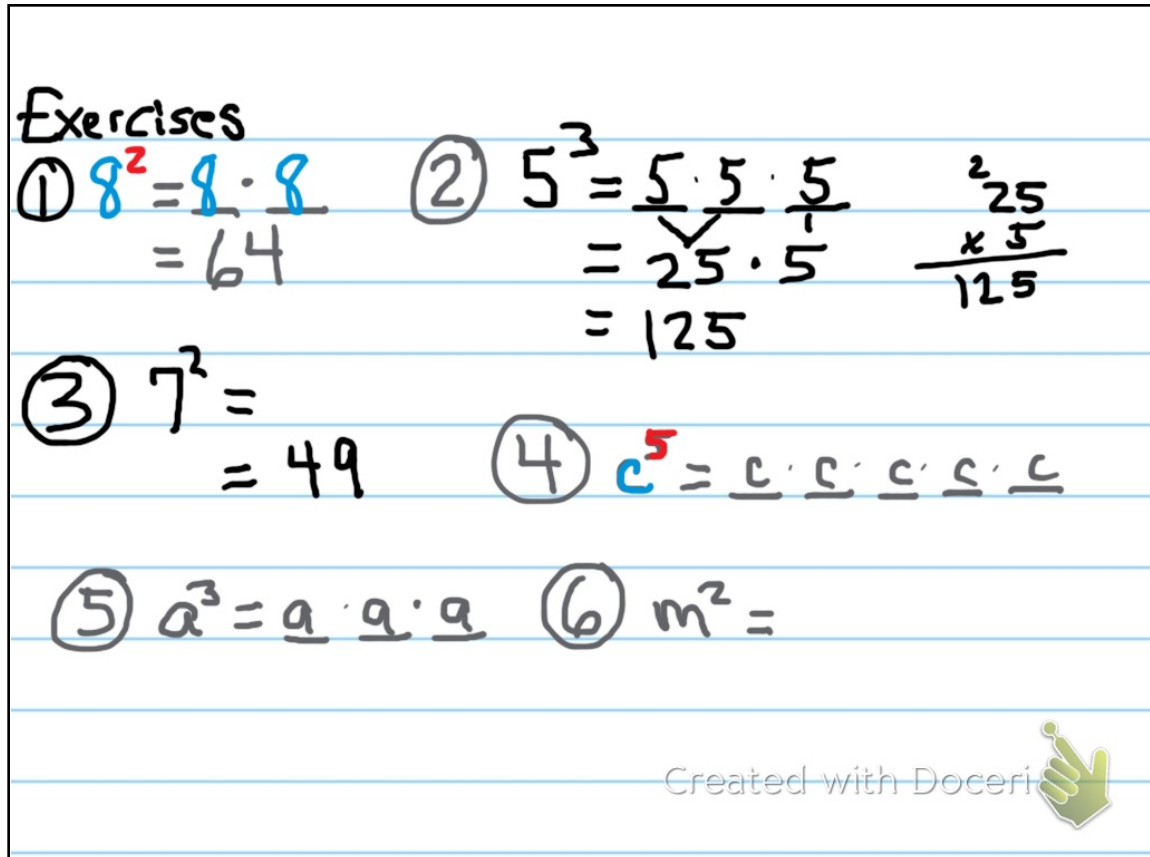 Exercises
① 8² = 8 · 8
= 64
② 5³ = 5 · 5 · 5
= 25 · 5
= 125
²25
x 5
125
③ 7² =
= 49
④ c⁵ = c · c · c · c · c
⑤ a³ = a · a · a
⑥ m² =
Created with Doceri